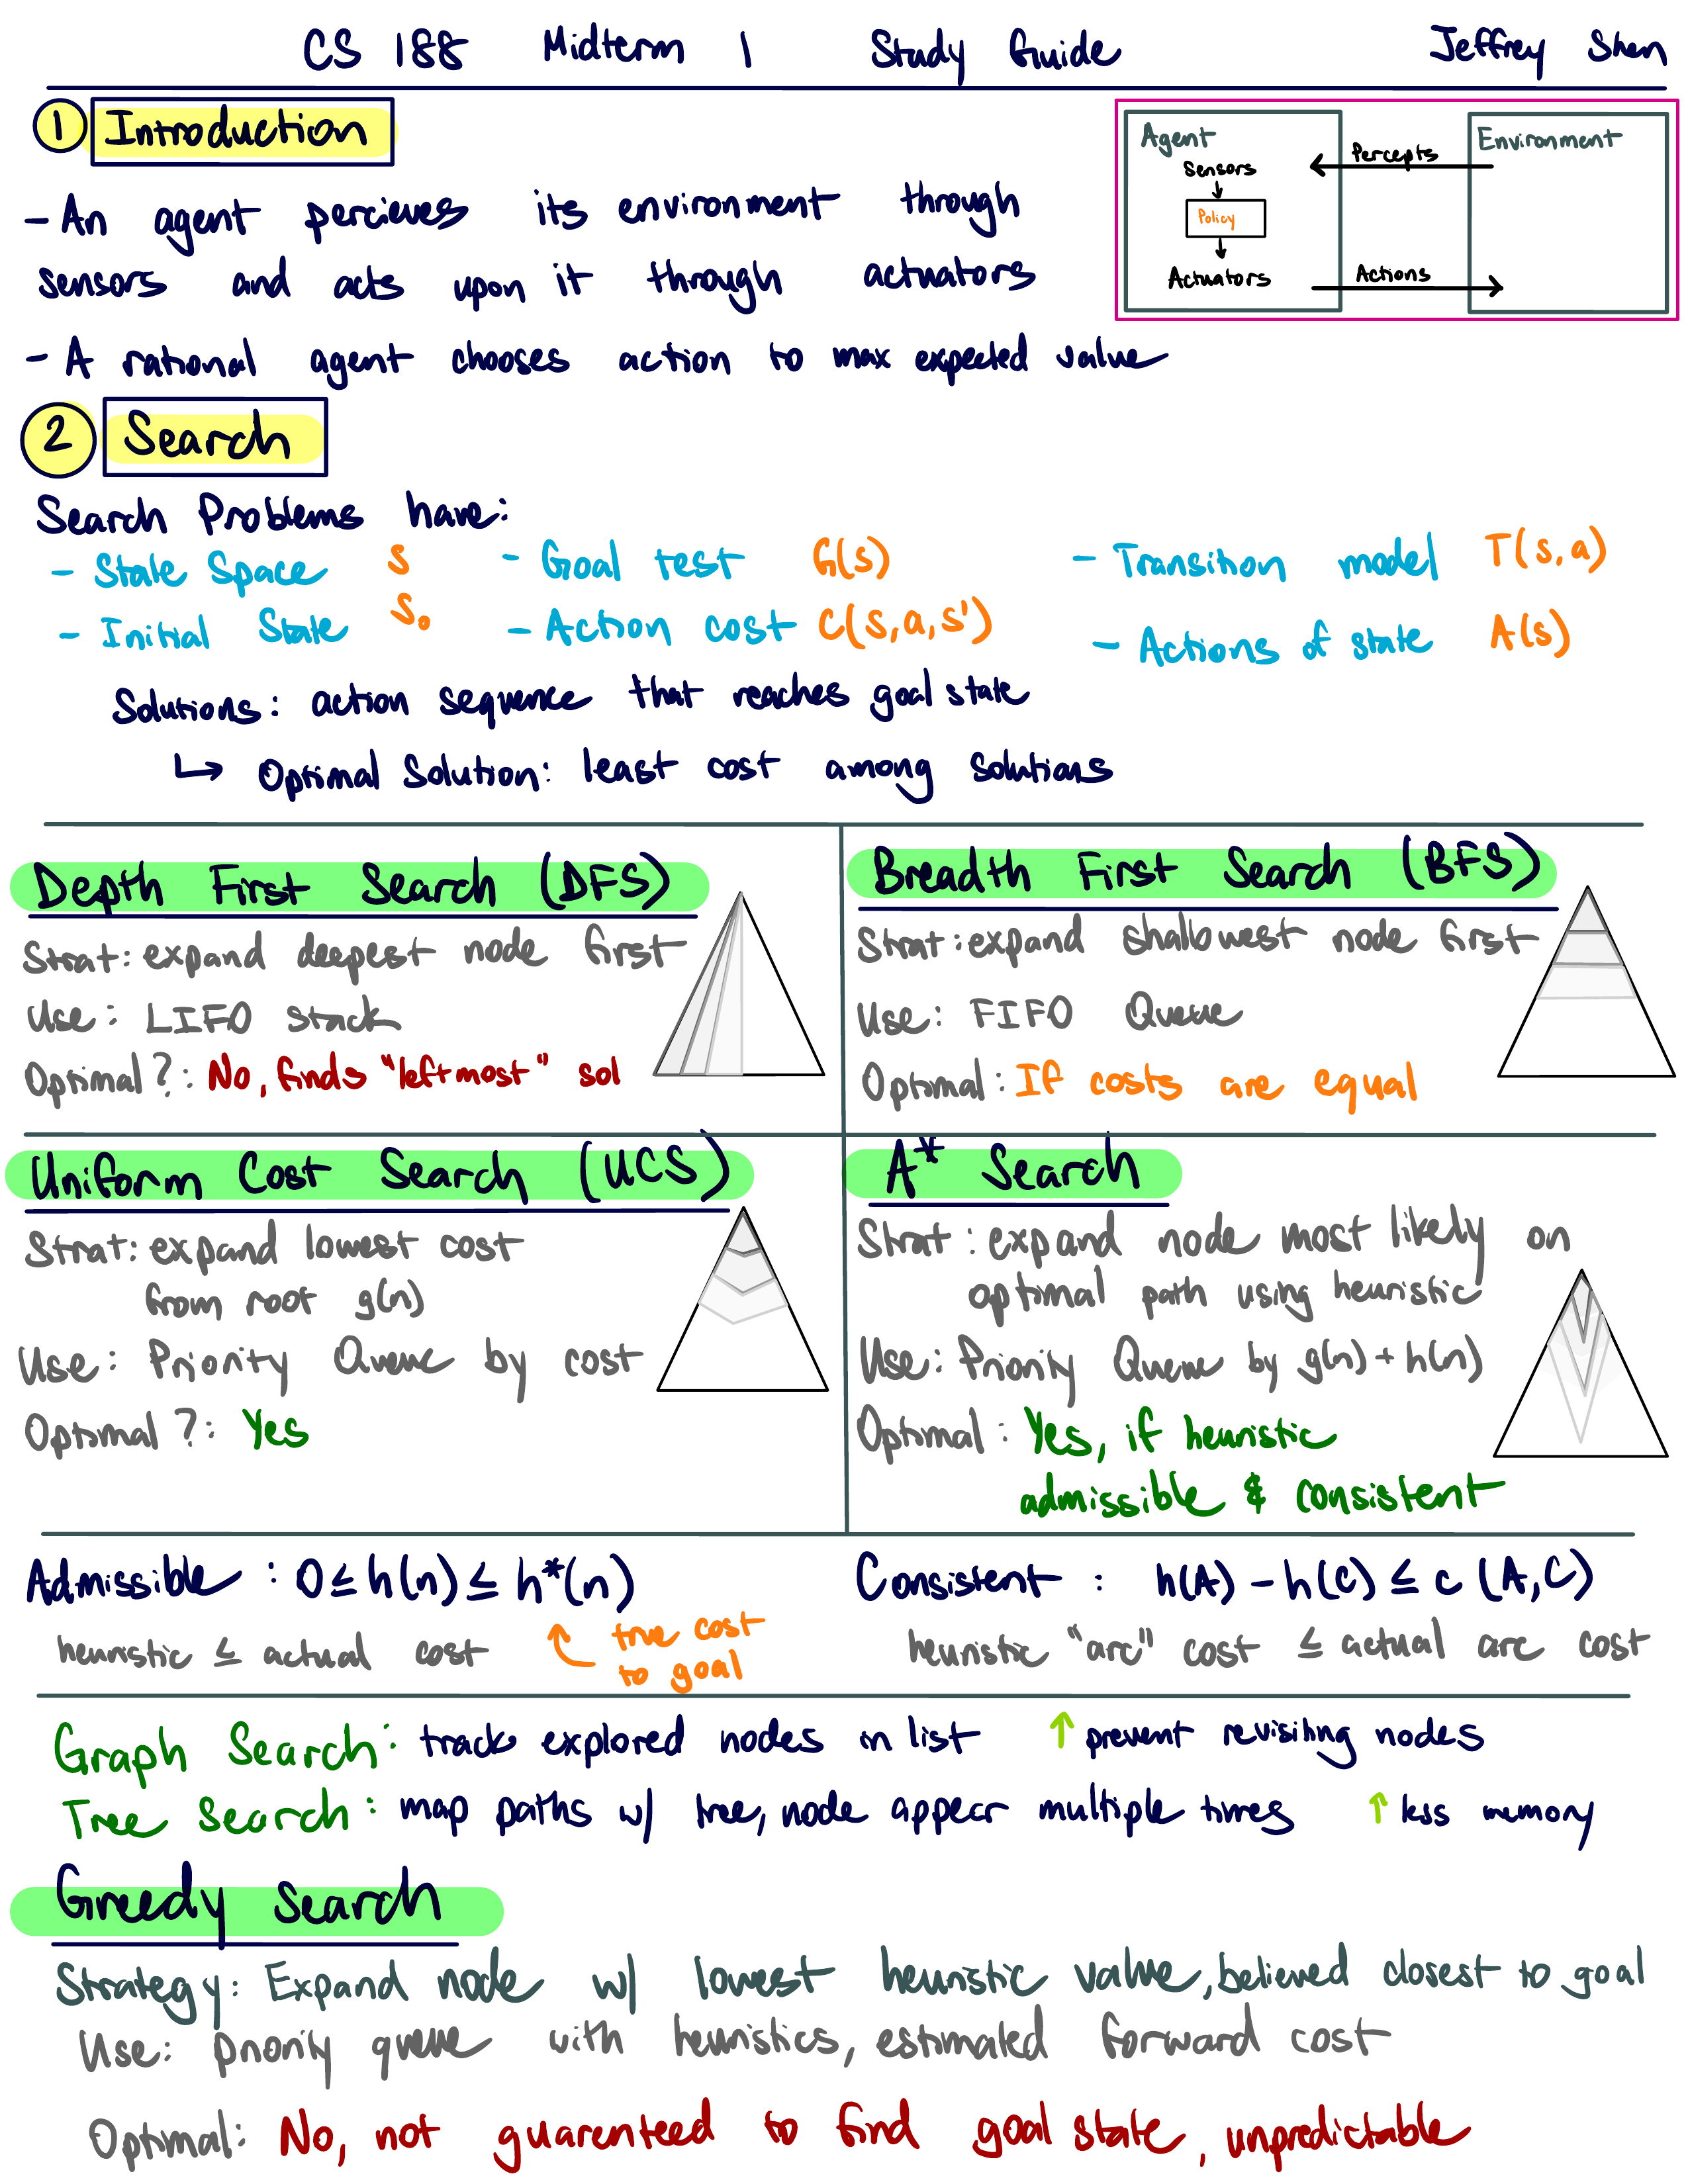 CS 188 Midterm 1 Study Guide Jeffrey Shen
1 Introduction
- An agent percieves its environment through
sensors and acts upon it through actuators
- A rational agent chooses action to max expected value
Agent
Sensors
Policy
Actuators
Percepts
Actions
Environment
2 Search
Search Problems have:
- State Space S - Goal test G(s) - Transition model T(s,a)
- Initial State S₀ - Action cost C(s,a,s') - Actions of state A(s)
Solutions: action sequence that reaches goal state
↳ Optimal Solution: least cost among solutions
Depth First Search (DFS)
Strat: expand deepest node first
Use: LIFO stack
Optimal?: No, finds "leftmost" sol
Breadth First Search (BFS)
Strat: expand shallowest node first
Use: FIFO Queue
Optimal: If costs are equal
Uniform Cost Search (UCS)
Strat: expand lowest cost
from root g(n)
Use: Priority Queue by cost
Optimal?: Yes
A* Search
Strat: expand node most likely on
optimal path using heuristic
Use: Priority Queue by g(n) + h(n)
Optimal: Yes, if heuristic
admissible & consistent
Admissible : 0 ≤ h(n) ≤ h*(n)
heuristic ≤ actual cost
true cost
to goal
Consistent : h(A) - h(C) ≤ c (A,C)
heuristic "arc" cost ≤ actual arc cost
Graph Search: track explored nodes in list ↑ prevent revisiting nodes
Tree Search: map paths w/ tree, node appear multiple times ↑ less memory
Greedy Search
Strategy: Expand node w/ lowest heuristic value, believed closest to goal
Use: priority queue with heuristics, estimated forward cost
Optimal: No, not guarenteed to find goal state, unpredictable